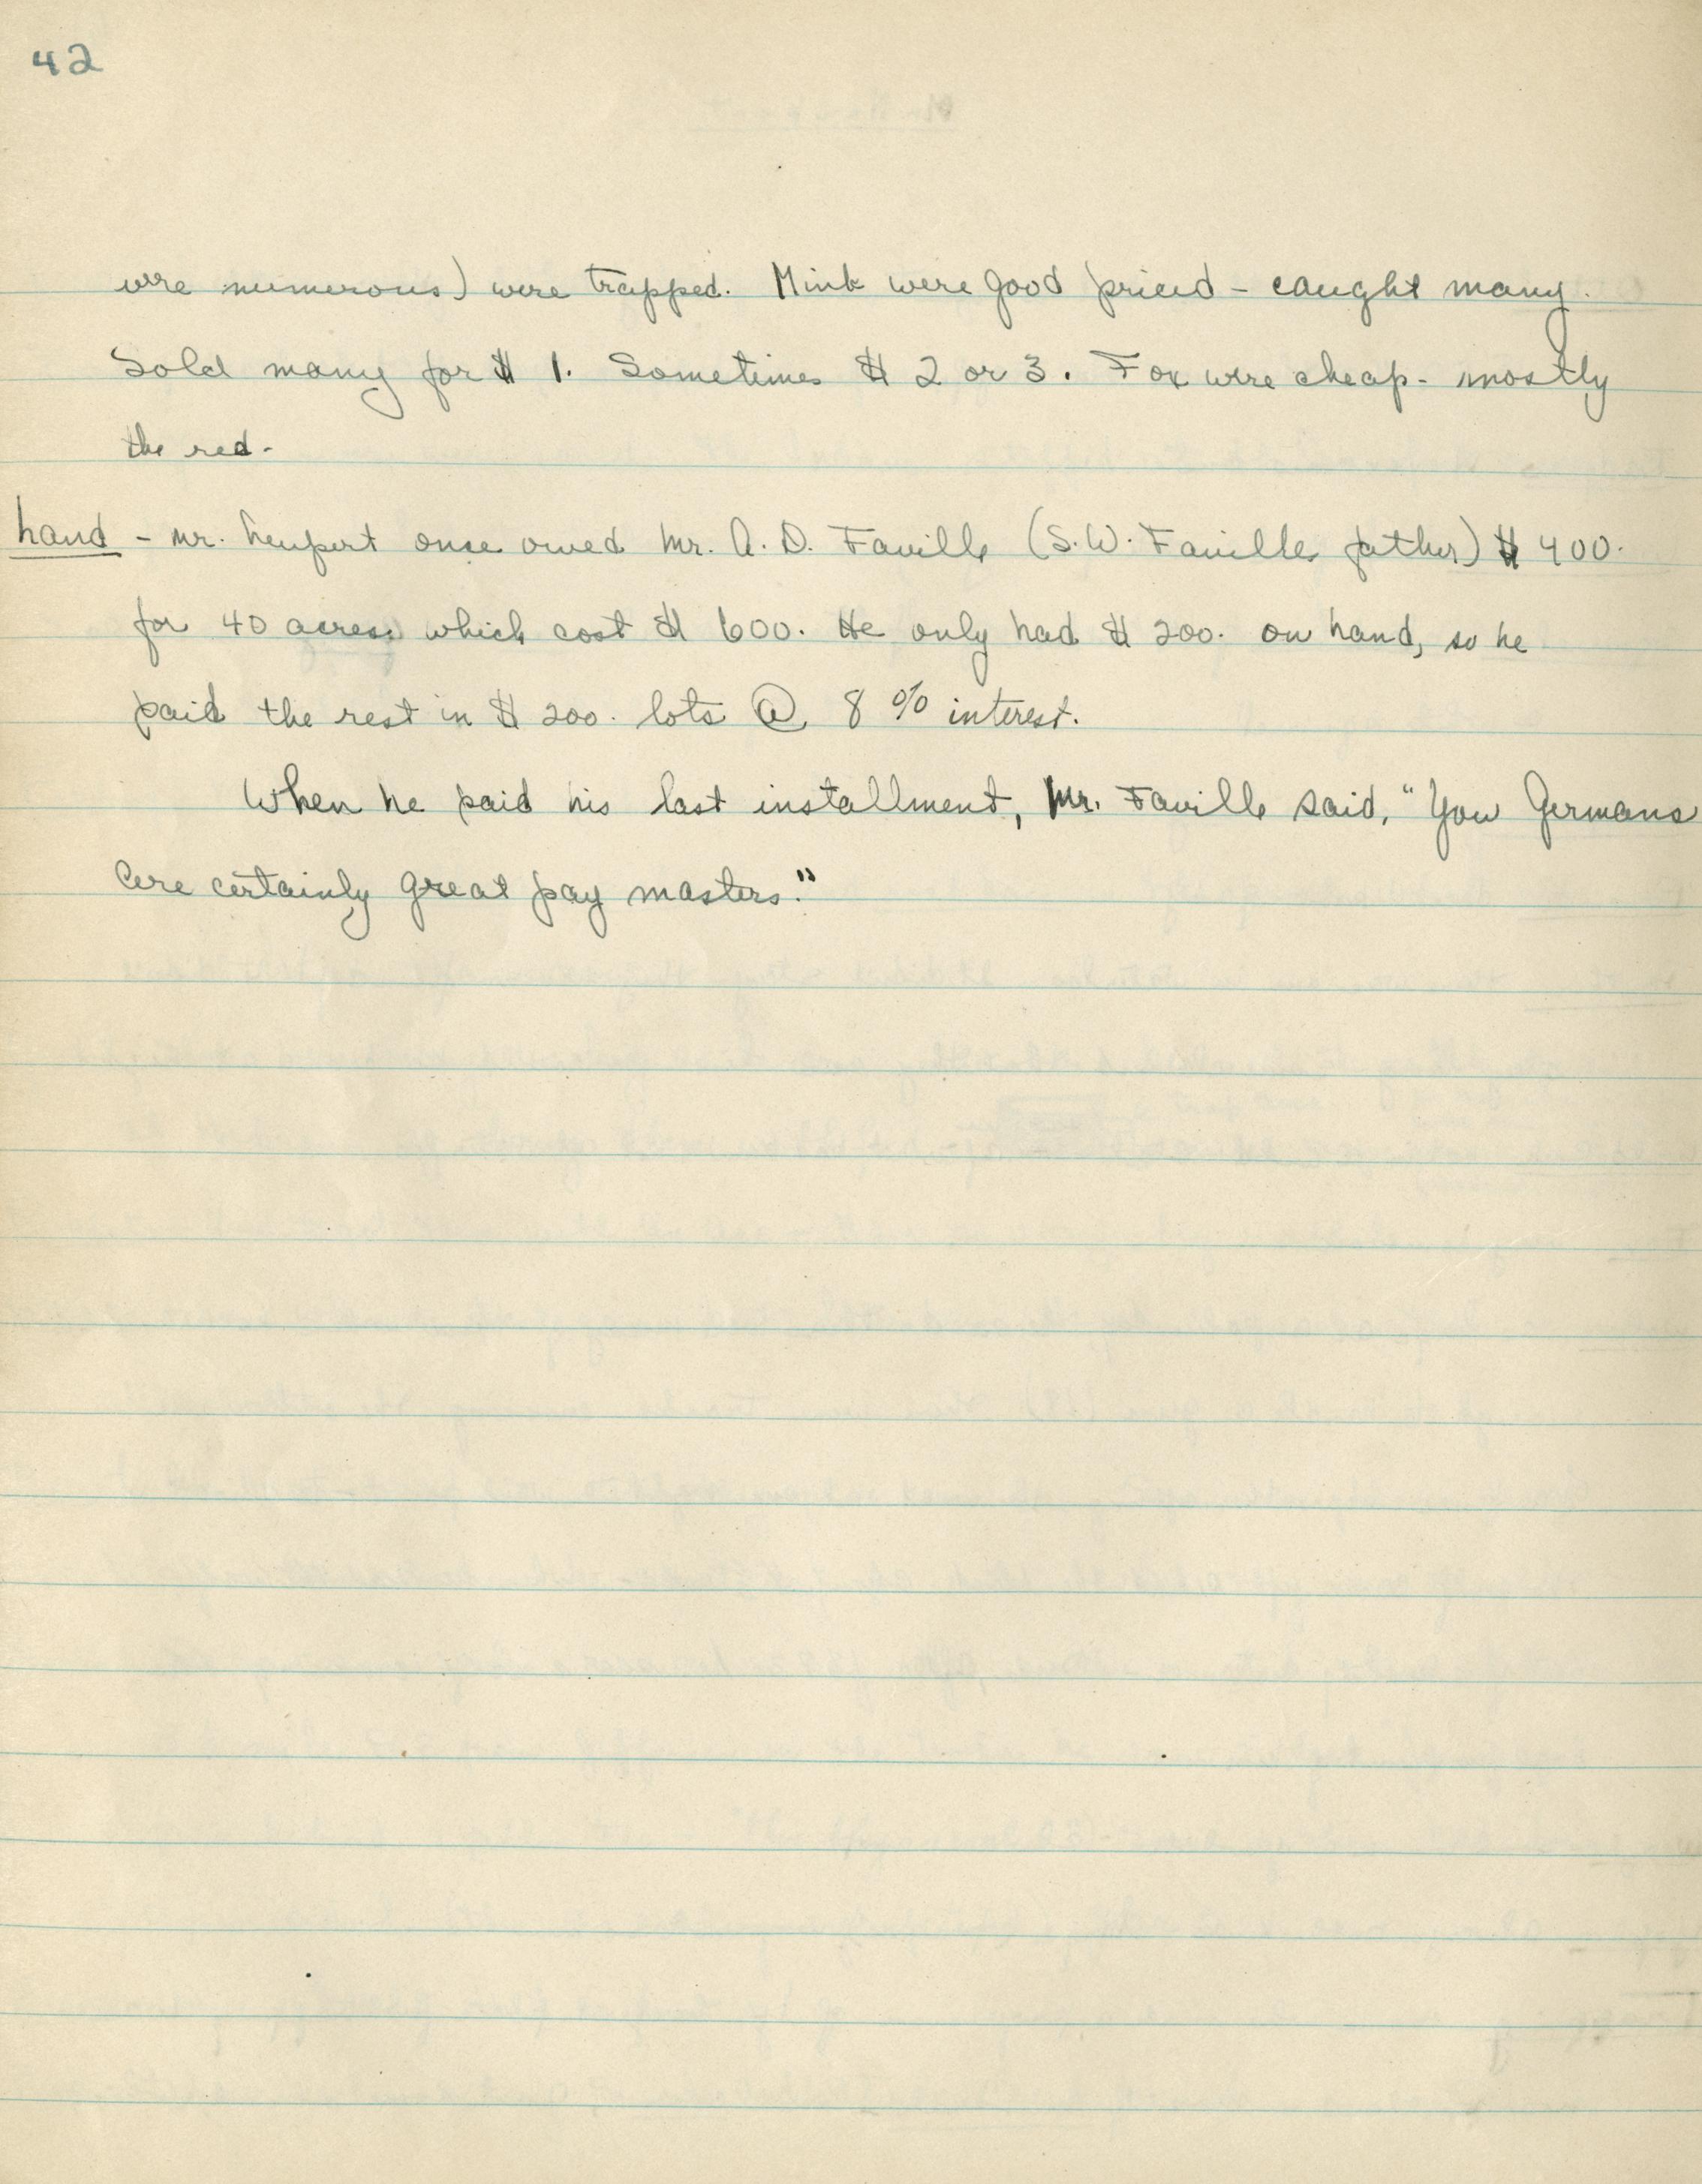 42
were numerous) were trapped. Mink were good priced - caught many.
Sold many for $ 1. Sometimes $ 2 or 3. Fox were cheap - mostly
the red -
hand - Mr. Neupert once owed Mr. A. D. Faville (S. W. Faville's father) $ 400.
for 40 acres which cost $ 600. He only had $ 200. on hand, so he
paid the rest in $ 200. lots @ 8 % interest.
When he paid his last installment, Mr. Faville said, "You Germans
are certainly great pay masters."